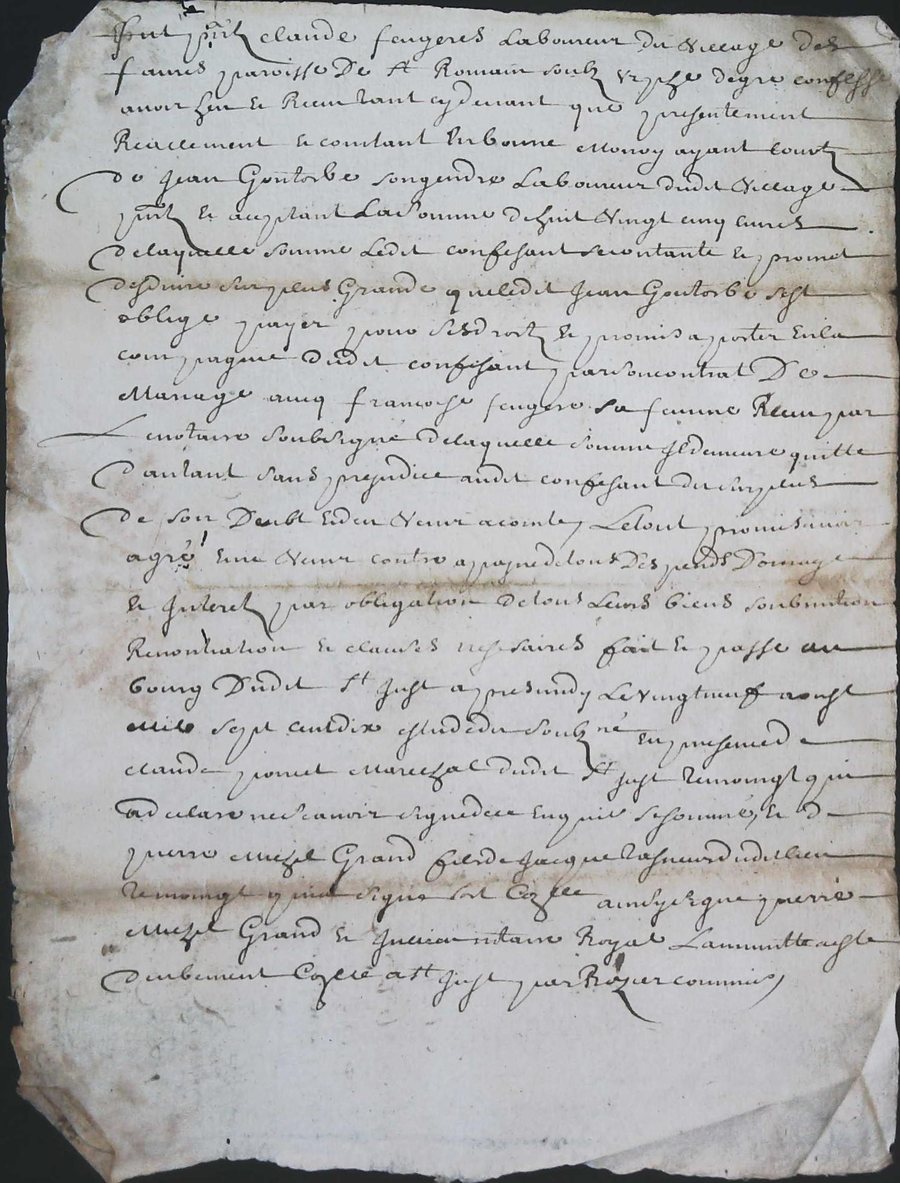 fut pnt claude feugeres Laboureur du Village des
faures paroisse De st Romain soubz Urphe degre confesse
avoir heu et Receu tant cydevant que presentement
Reacelement et contant En bonne Monoy ayant court
de Jean Goutorbe son gendre Laboureur dudit Village
pnt et aceptant La somme de huit Vingt cinq livres
de laquelle somme Ledit confesant se contante et promet
desduire sur plus Grande que ledit Jean Goutorbe sest
oblige payer pour ses droitz et promis aporter En la
compagnie dudit confesant par son contrat De
Mariage avecq francoise feugere sa femme Receu par
Le notaire soubsigné de laquelle somme Il demeure quitte
dautant sans prejudice audit confesant du surplus
de son Deubt et den Venir a comte, Le tout promis avoir
agré Et ne Venir contre a payne de tous Despends Domage
et Interetz par obligation de tous Leurs biens soubmition
Renontiation et clauses nesesaires fait et passe au
bourg Dudit st Just apres midy Le vingt neuf aoust
mil sept cent dix estude du soubz né En presence de
claude ponet Marechal dudit st Just temoingt qui
a declare ne scavoir signe de ce Enquis et sommé, et de
pierre Michel Grand fils de Jacque dudit lieu
temoingt qui a signe
Michel Grand et notaire Royal La minutte
deubement a st Just par Rozier commis